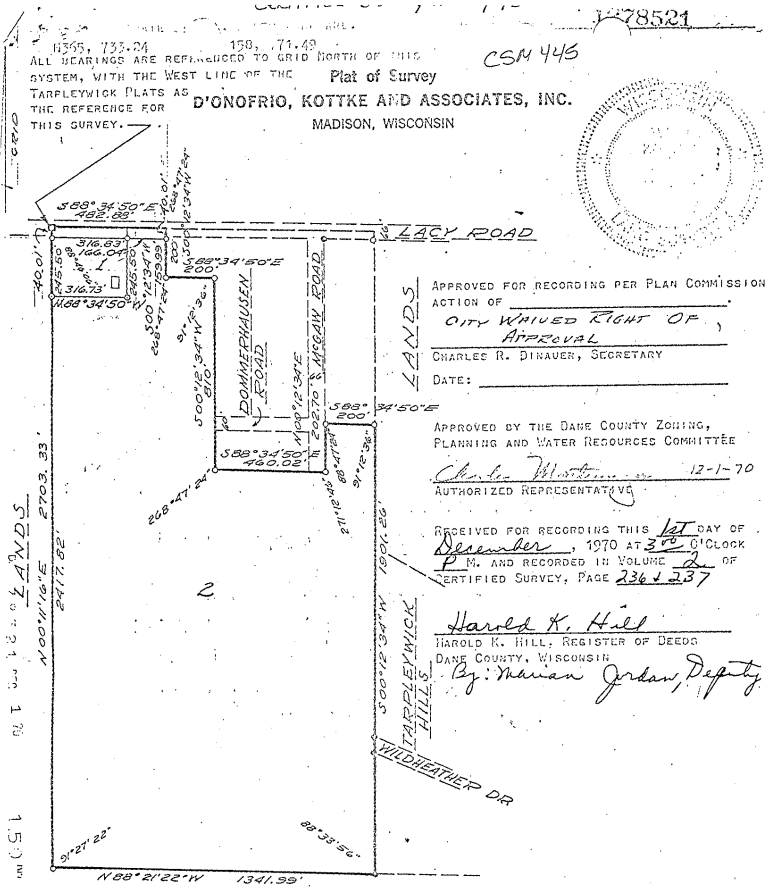 78521
CSM 445
N365, 733.24
ALL BEARINGS ARE REFERENCED TO GRID NORTH OF THIS
SYSTEM, WITH THE WEST LINE OF THE
TARPLEYWICK PLATS AS
THE REFERENCE FOR
THIS SURVEY.
Plat of Survey
D'ONOFRIO, KOTTKE AND ASSOCIATES, INC.
MADISON, WISCONSIN
GRID
WISCONSIN
S88°34'50"E
482.88'
40.01'
268°47'24"
S00°12'34"W
LACY ROAD
66'
316.83'
166.04'
40.01'
245.50'
245.50'
316.73'
N88°34'50"W
S00°12'34"W
159.99'
268°47'24"
200'
S88°34'50"E
200'
91°12'36"
S00°12'34"W
810'
DOMMERHAUSEN
ROAD
60'
N00°12'34"E
202.70'
66'
McGAW ROAD
S88°34'50"E
200'
S88°34'50"E
460.02'
268°47'24"
88°47'24"
271°12'36"
91°12'36"
LANDS
LANDS
N00°11'16"E 2703.33'
2417.82'
2
S00°12'34"W 1901.26'
TARPLEYWICK
HILLS
WILDHEATHER DR
91°27'22"
88°33'56"
N88°21'22"W 1341.99'
APPROVED FOR RECORDING PER PLAN COMMISSION
ACTION OF
CITY WAIVED RIGHT OF,
APPROVAL
CHARLES R. DINAUER, SECRETARY
DATE:
APPROVED BY THE DANE COUNTY ZONING,
PLANNING AND WATER RESOURCES COMMITTEE
12-1-70
AUTHORIZED REPRESENTATIVE
RECEIVED FOR RECORDING THIS 1st DAY OF
December, 1970 AT 3 O'CLOCK
P M. AND RECORDED IN VOLUME 2 OF
CERTIFIED SURVEY, PAGE 236 & 237
Harold K. Hill
HAROLD K. HILL, REGISTER OF DEEDS
DANE COUNTY, WISCONSIN
By: Marian Jordan, Deputy